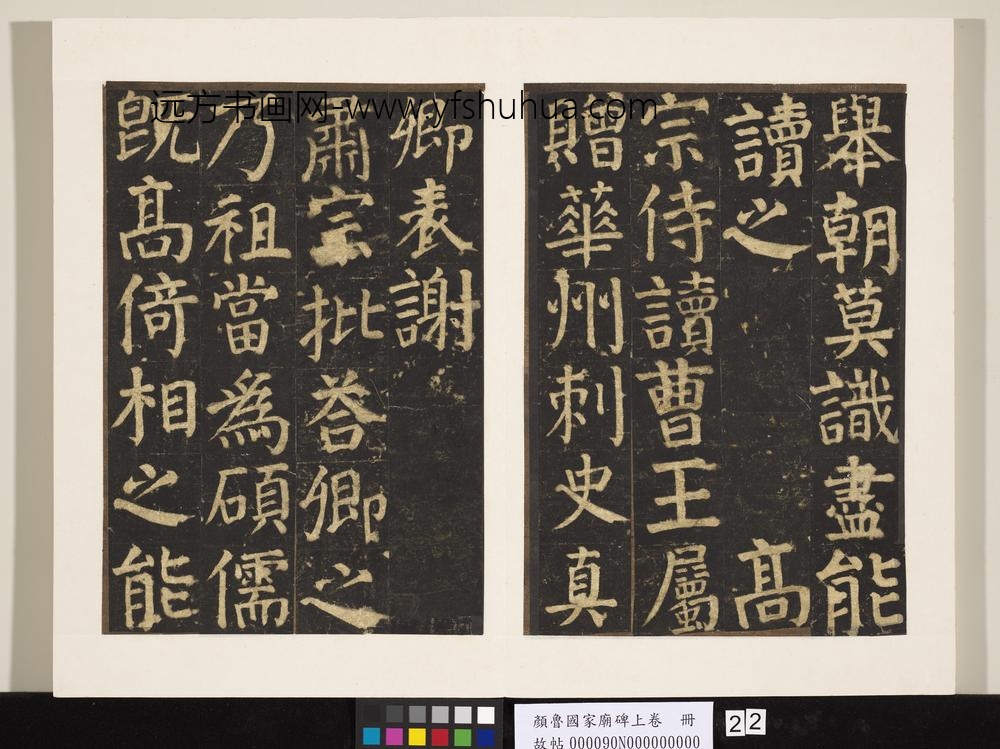 远方书画网-www.yfshuhua.com
舉朝莫識盡能
讀之 高
宗侍讀曹王屬
贈華州刺史真
卿表謝
肅宗批荅卿之
乃祖當為碩儒
既高倚相之能
顏魯國家廟碑上卷 冊
故帖000090N000000000
22